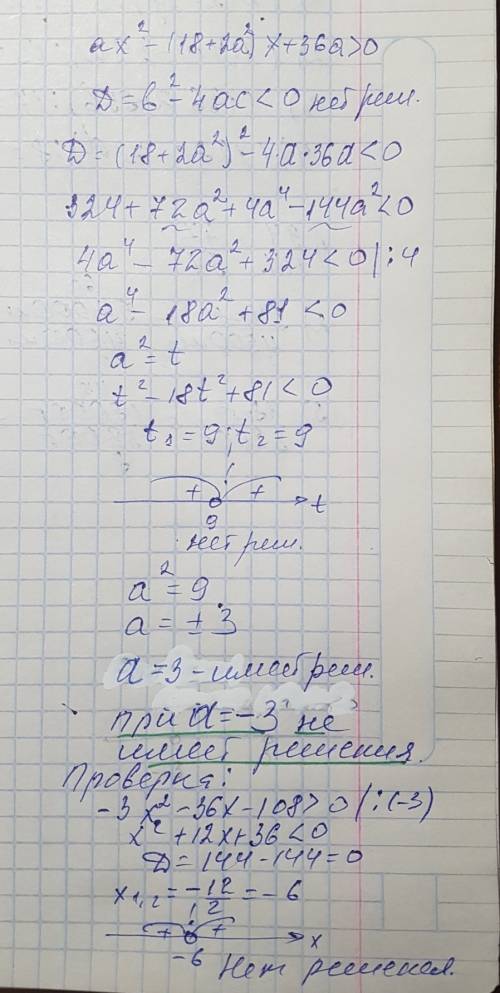 ax² - (18+2a²)x + 36a > 0
D = b² - 4ac < 0 нет реш.
D = (18+2a²)² - 4·a·36a < 0
324 + 72a² + 4a⁴ - 144a² < 0
4a⁴ - 72a² + 324 < 0 | : 4
a⁴ - 18a² + 81 < 0
a² = t
t² - 18t² + 81 < 0
t₁ = 9; t₂ = 9
+ + t
9
нет реш.
a² = 9
a = ± 3
a = 3 - имеет реш.
при a = -3 не
имеет решения.
Проверка:
-3x² - 36x - 108 > 0 | : (-3)
x² + 12x + 36 < 0
D = 144 - 144 = 0
x₁,₂ = -12/2 = -6
+ + x
-6 Нет решения.